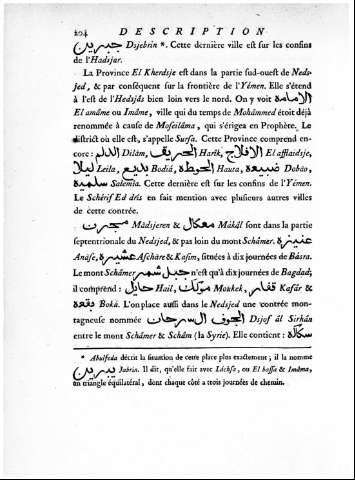 204 DESCRIPTION
جبرين Dsjebrin *. Cette dernière ville est sur les confins
de l'Hadsjar.
La Province El Kherdsje est dans la partie sud-ouest de Neds-
jed, & par conséquent sur la frontière de l'Yémen. Elle s'étend
à l'est de l'Hedsjâs bien loin vers le nord. On y voit الامامة
El amâme ou Imâme, ville qui du temps de Mohámmed étoit déjà
renommée à cause de Moseilâma, qui s'érigea en Prophète. Le
district où elle est, s'appelle Sursa. Cette Province comprend en-
core: الدلم Dilâm, الحريق Harîk, الافلاج El afflaidsje,
ليلا Leila, بديع Bodiá, الحيطة Hauta, ضبيعة Dobáo,
سلمية Salemîa. Cette dernière est sur les confins de l'Yémen.
Le Schérif Ed drîs en fait mention avec plusieurs autres villes
de cette contrée.
مجرن Mâdsjeren & معكال Mâkâl sont dans la partie
septentrionale du Nedsjed, & pas loin du mont Schâmer. عنيزة
Anâse, عشيرة Aschâre & Kasîm, situées à dix journées de Básra.
Le mont Schâmer جبل شمر n'est qu'à dix journées de Bagdad;
il comprend: حايل Hail, موكك Moukek, قفار Kafâr &
بقعة Bokà. L'on place aussi dans le Nedsjed une contrée mon-
tagneuse nommée الجوف السرحان Dsjof âl Sirhân
entre le mont Schâmer & Schâm (la Syrie). Elle contient: سكاكة
* Abulfeda décrit la situation de cette place plus exactement; il la nomme
يبرين Jabrin. Il dit, qu'elle fait avec Láchsa, ou El hassa & Imâma,
un triangle équilatéral, dont chaque côté a trois journées de chemin.